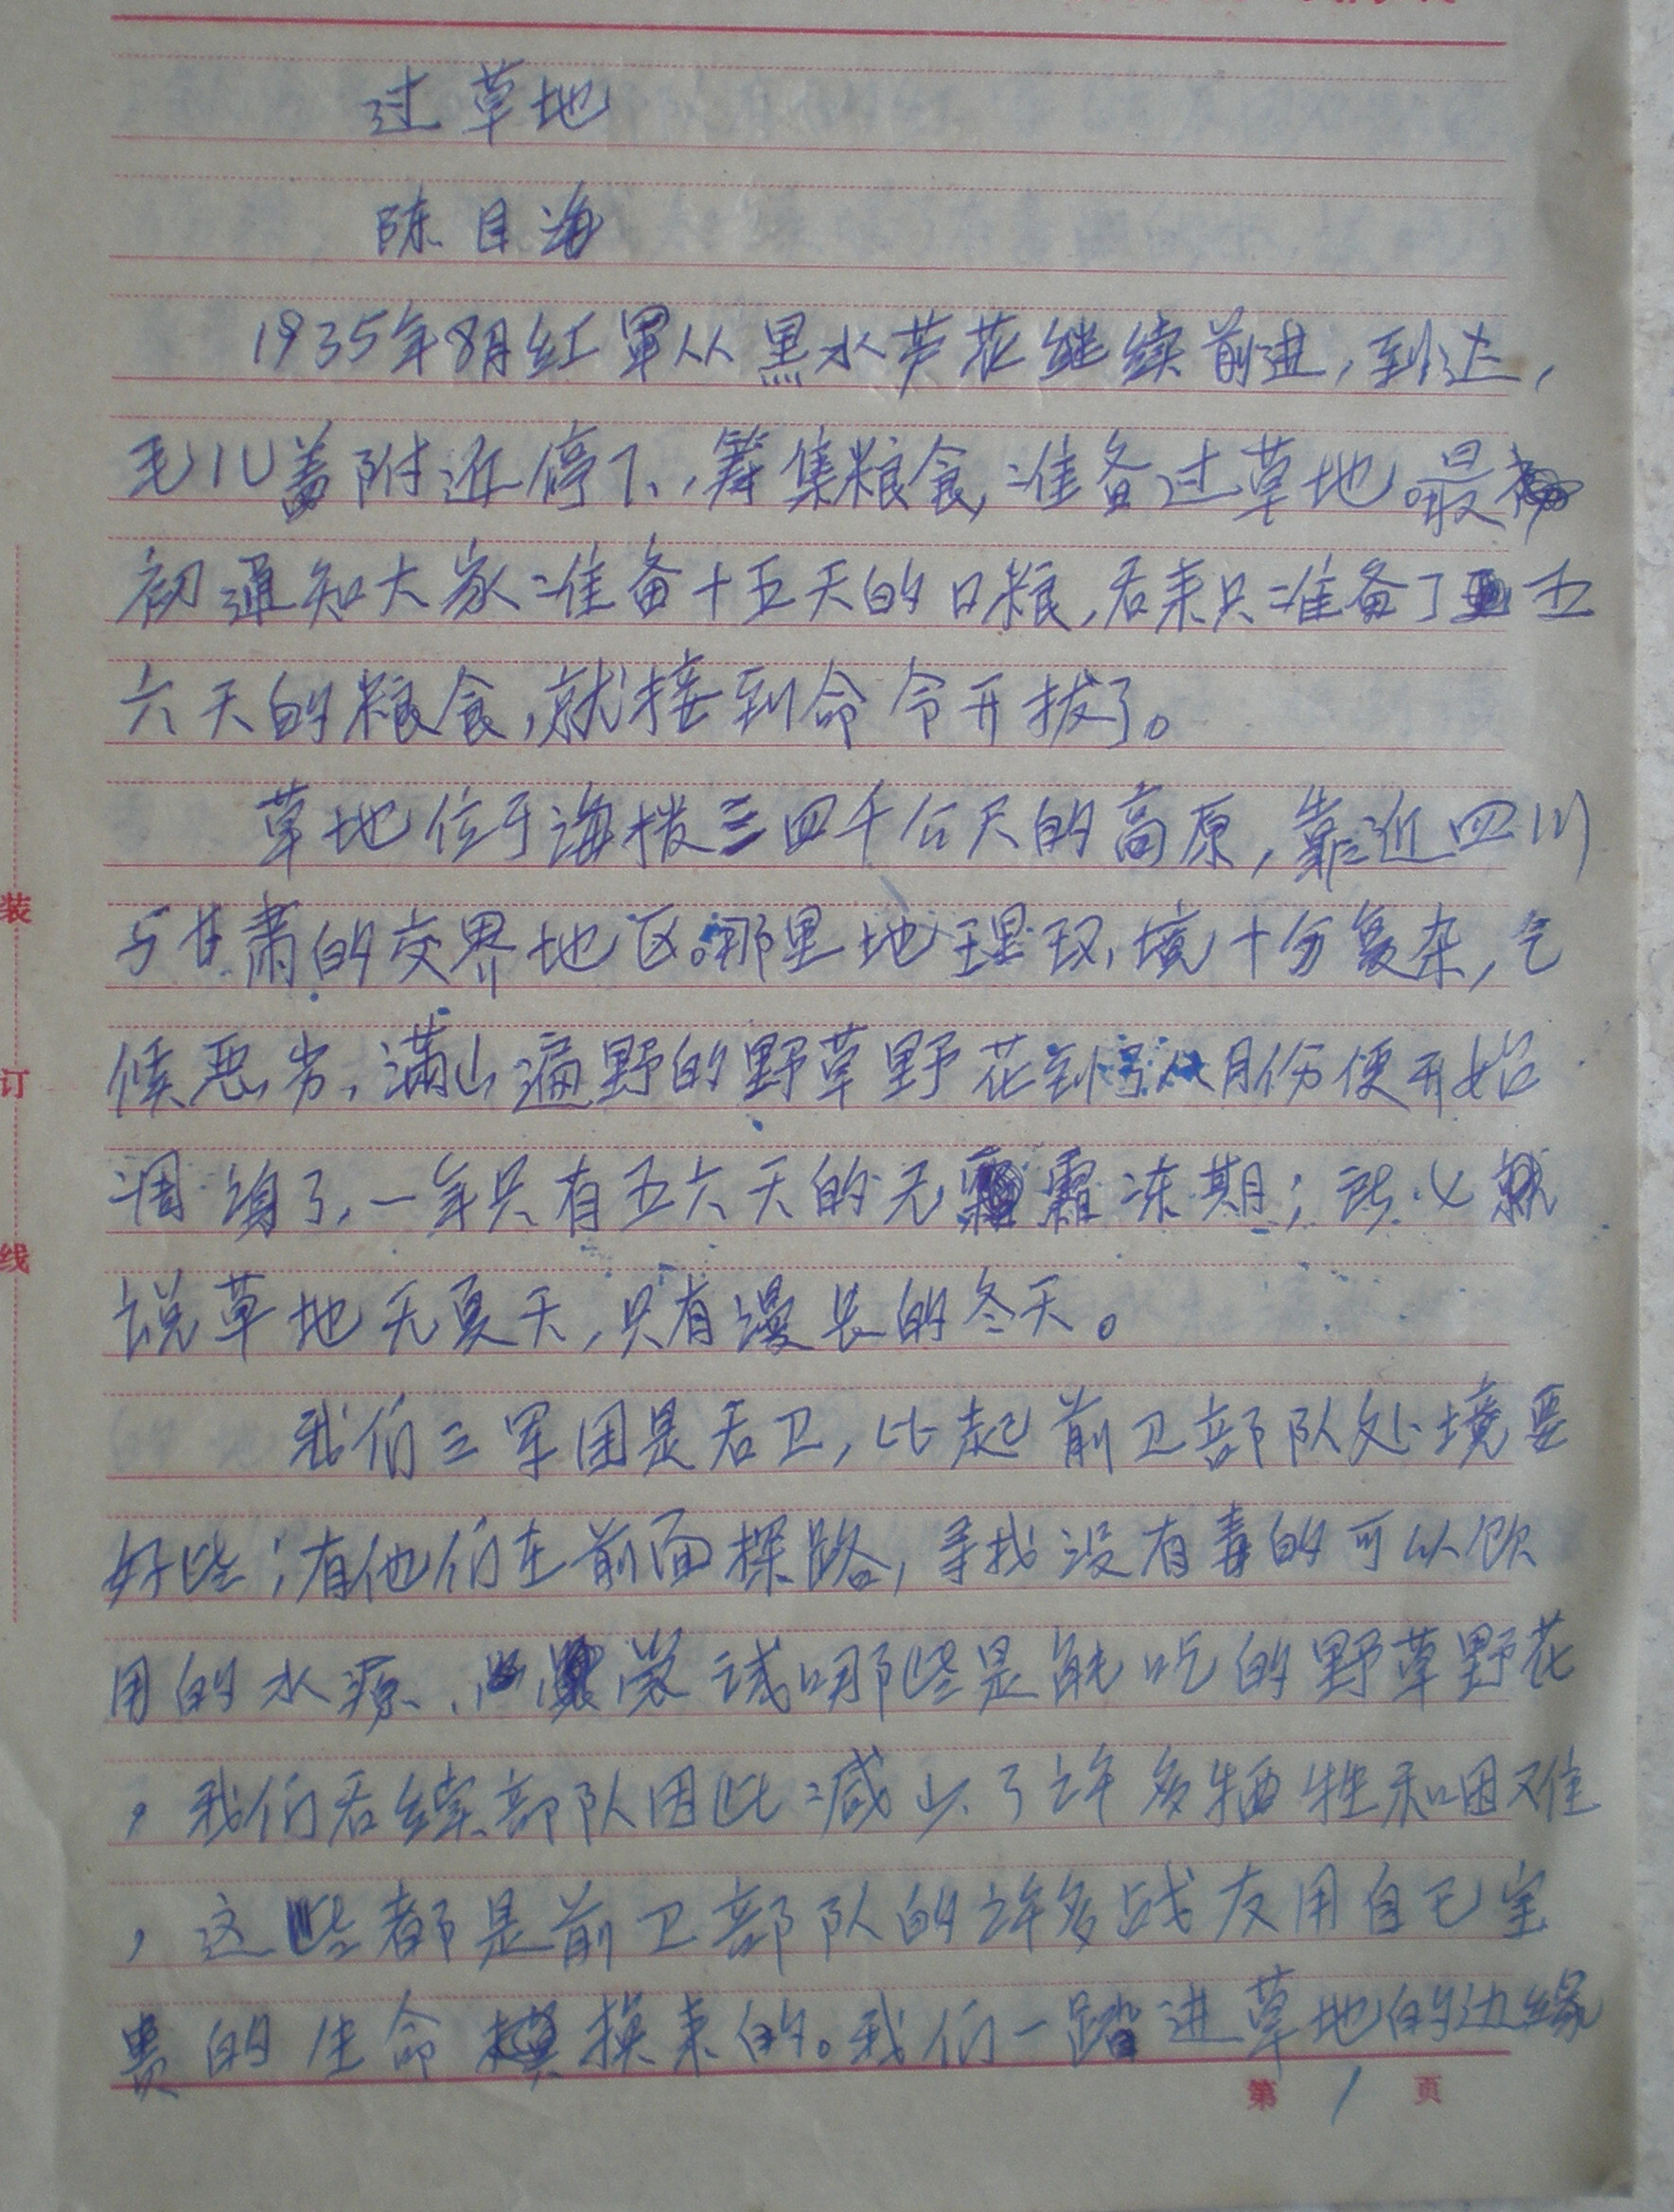 过草地
陈目海
1935年8月红军从黑水芦花继续前进，到达，
毛儿盖附近停下，筹集粮食，准备过草地。最
初通知大家准备十五天的口粮，后来只准备了五
六天的粮食，就接到命令开拔了。
草地位于海拨三四千公尺的高原，靠近四川
与甘肃的交界地区。那里地理环境十分复杂，气
候恶劣，满山遍野的野草野花到了八月份便开始
凋谢了，一年只有五六天的无霜冻期；所以就
说草地无夏天，只有漫长的冬天。
我们三军团是后卫，比起前卫部队处境要
好些；有他们在前面探路，寻找没有毒的可以饮
用的水源、尝试哪些是能吃的野草野花
，我们后续部队因此减少了许多牺牲和困难
，这些都是前卫部队的许多战友用自己宝
贵的生命换来的。我们一踏进草地的边缘
第1页
装
订
线